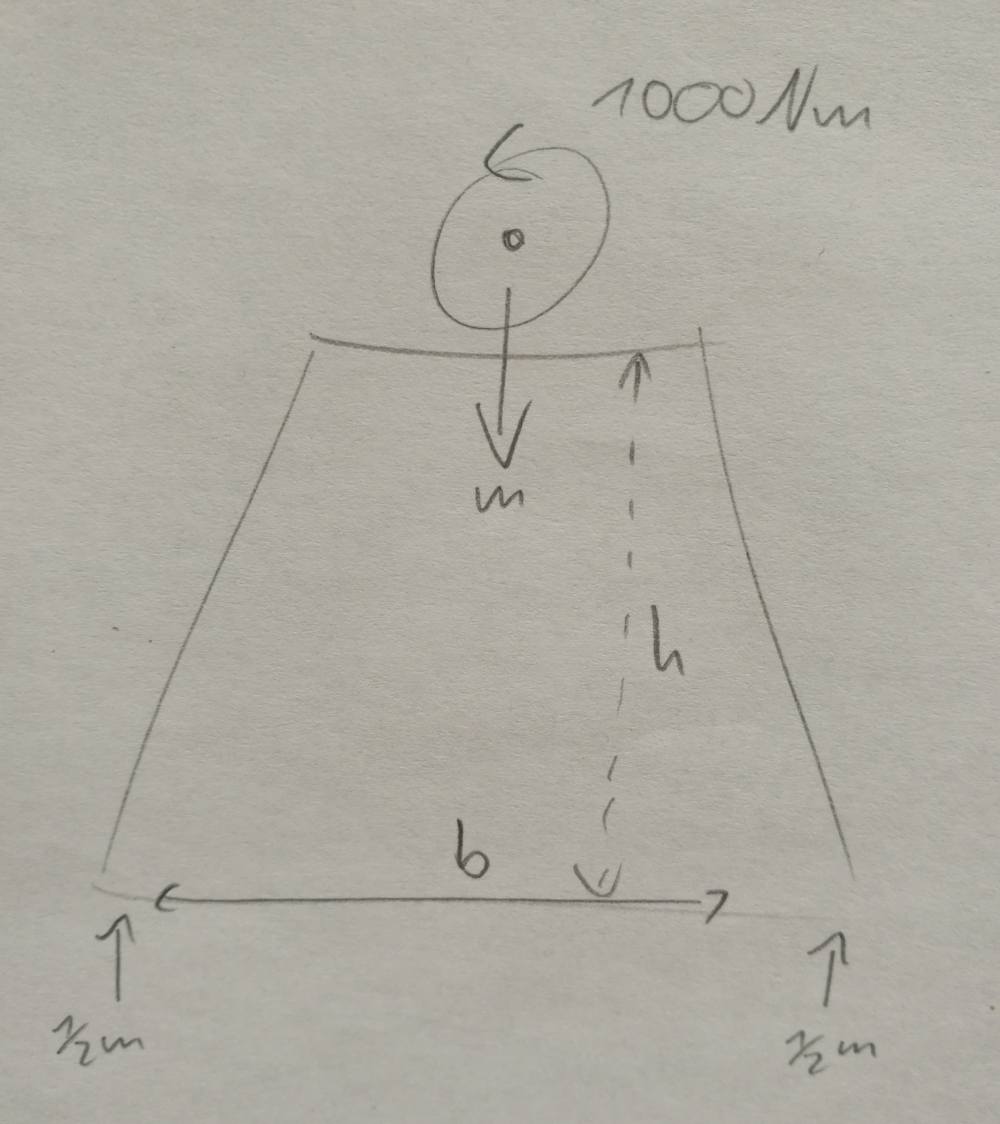 1000 Nm
m
h
b
½m
½m